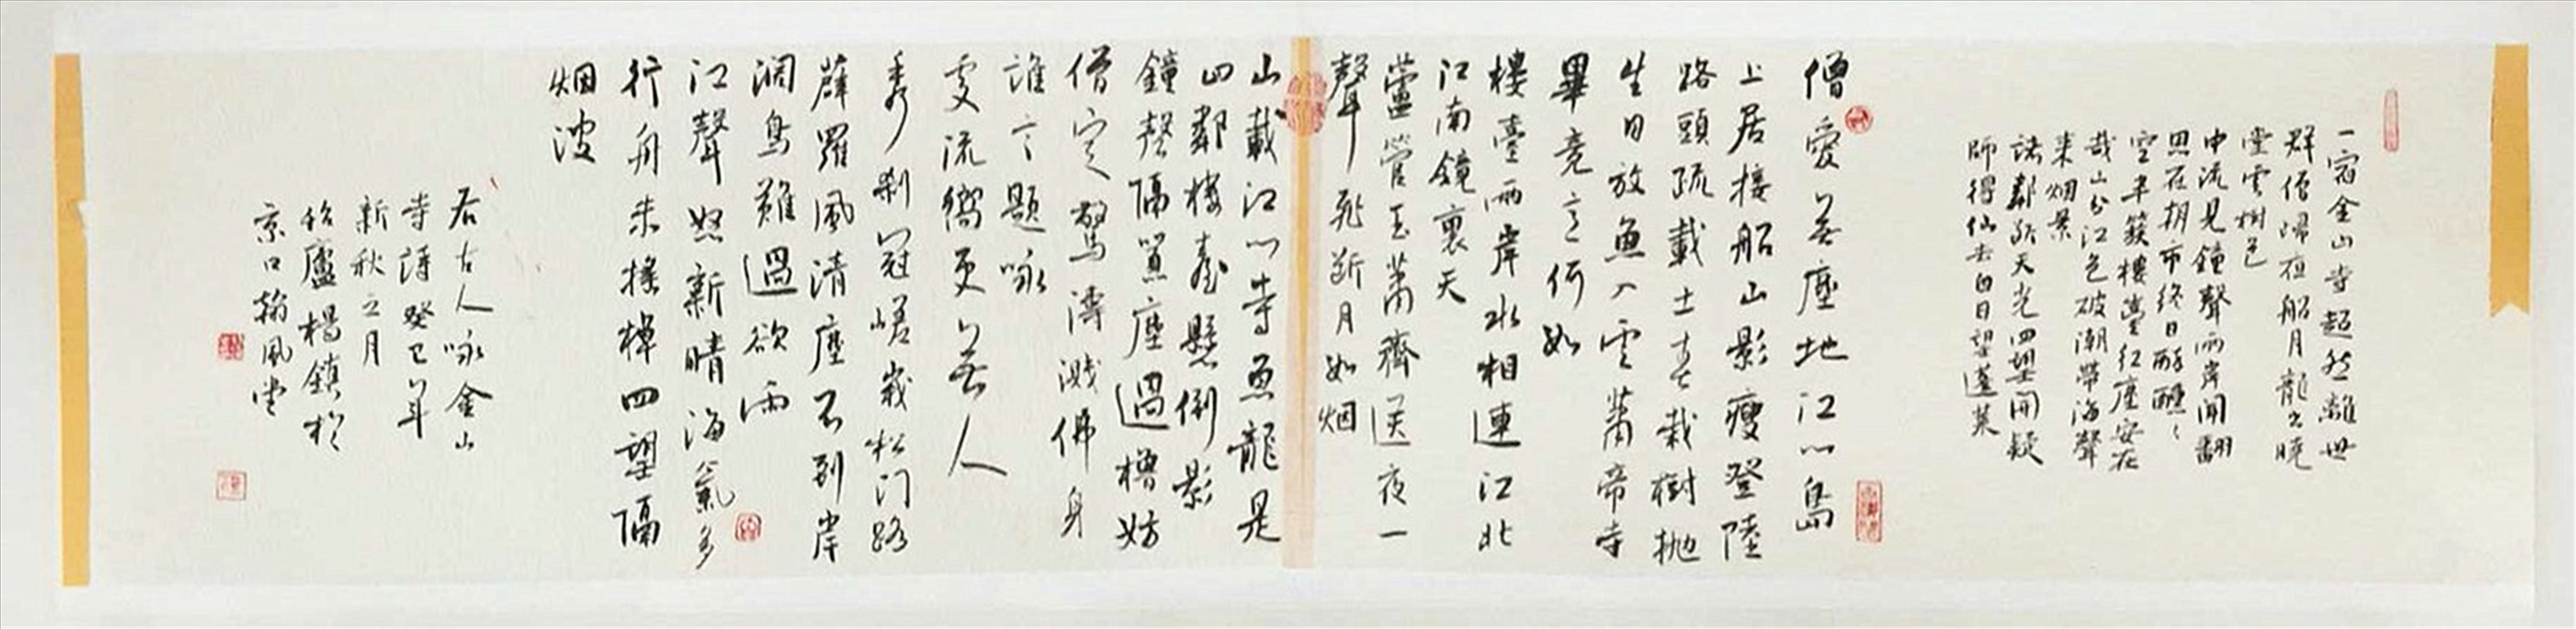 一宿金山寺超然離世
群僧歸夜船月龍出曉
堂雲樹色
中流見鐘聲兩岸聞翻
思在朝市終日醉醺々
空半簇樓臺紅塵安在
哉山分江色破潮帶海聲
來烟景
諸鄰跡天光四望開疑
師得仙去白日望蓬萊
僧愛無塵地江心島
上居接船山影瘦登陸
路頭疏載土春栽樹拋
生日放魚入雲蕭帝寺
畢竟意何如
樓臺兩岸水相連江北
江南鏡裏天
蘆管玉簫齊送夜一
聲飛斷月如烟
山載江心寺魚龍是
四鄰樓臺懸倒影
鐘磬隔囂塵過櫓妨
僧定驚濤濺佛身
誰言題咏
處流響更無人
秀剎冠嵯峨松門路
薜羅風清塵不到岸
濶鳥難過欲雨
江聲怒新晴海氣多
行舟未搖棹四望隔
烟波
右古人咏金山
寺詩癸巳年
新秋之月
廬楊鎮於
京口翰風堂